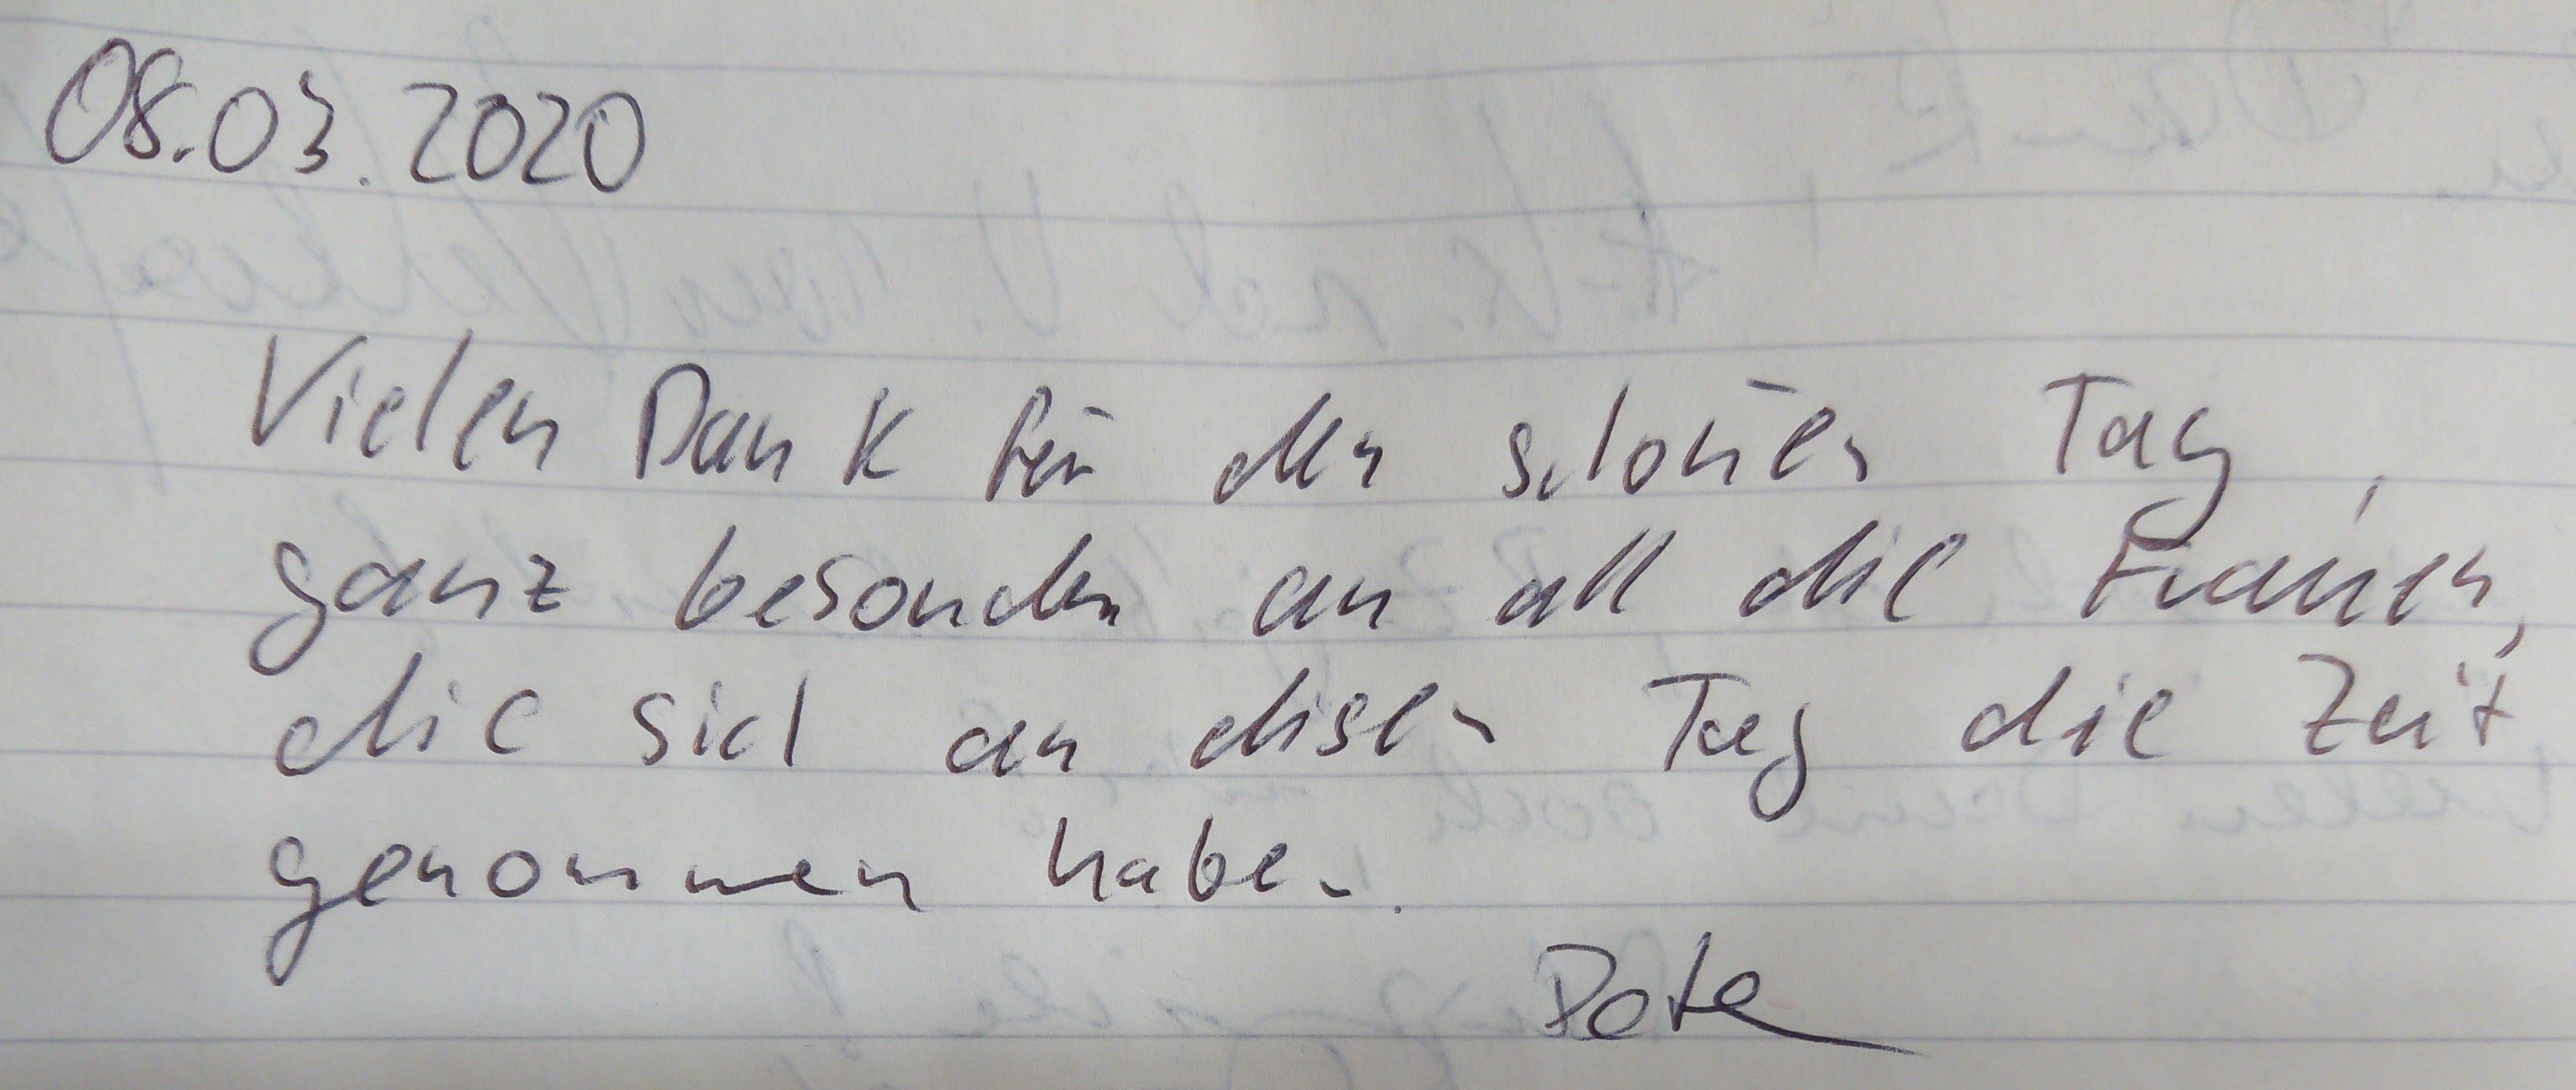 08.03.2020
Vielen Dank für den schönen Tag,
ganz besonders an all die Frauen,
die sich an diesen Tag die Zeit
genommen haben.